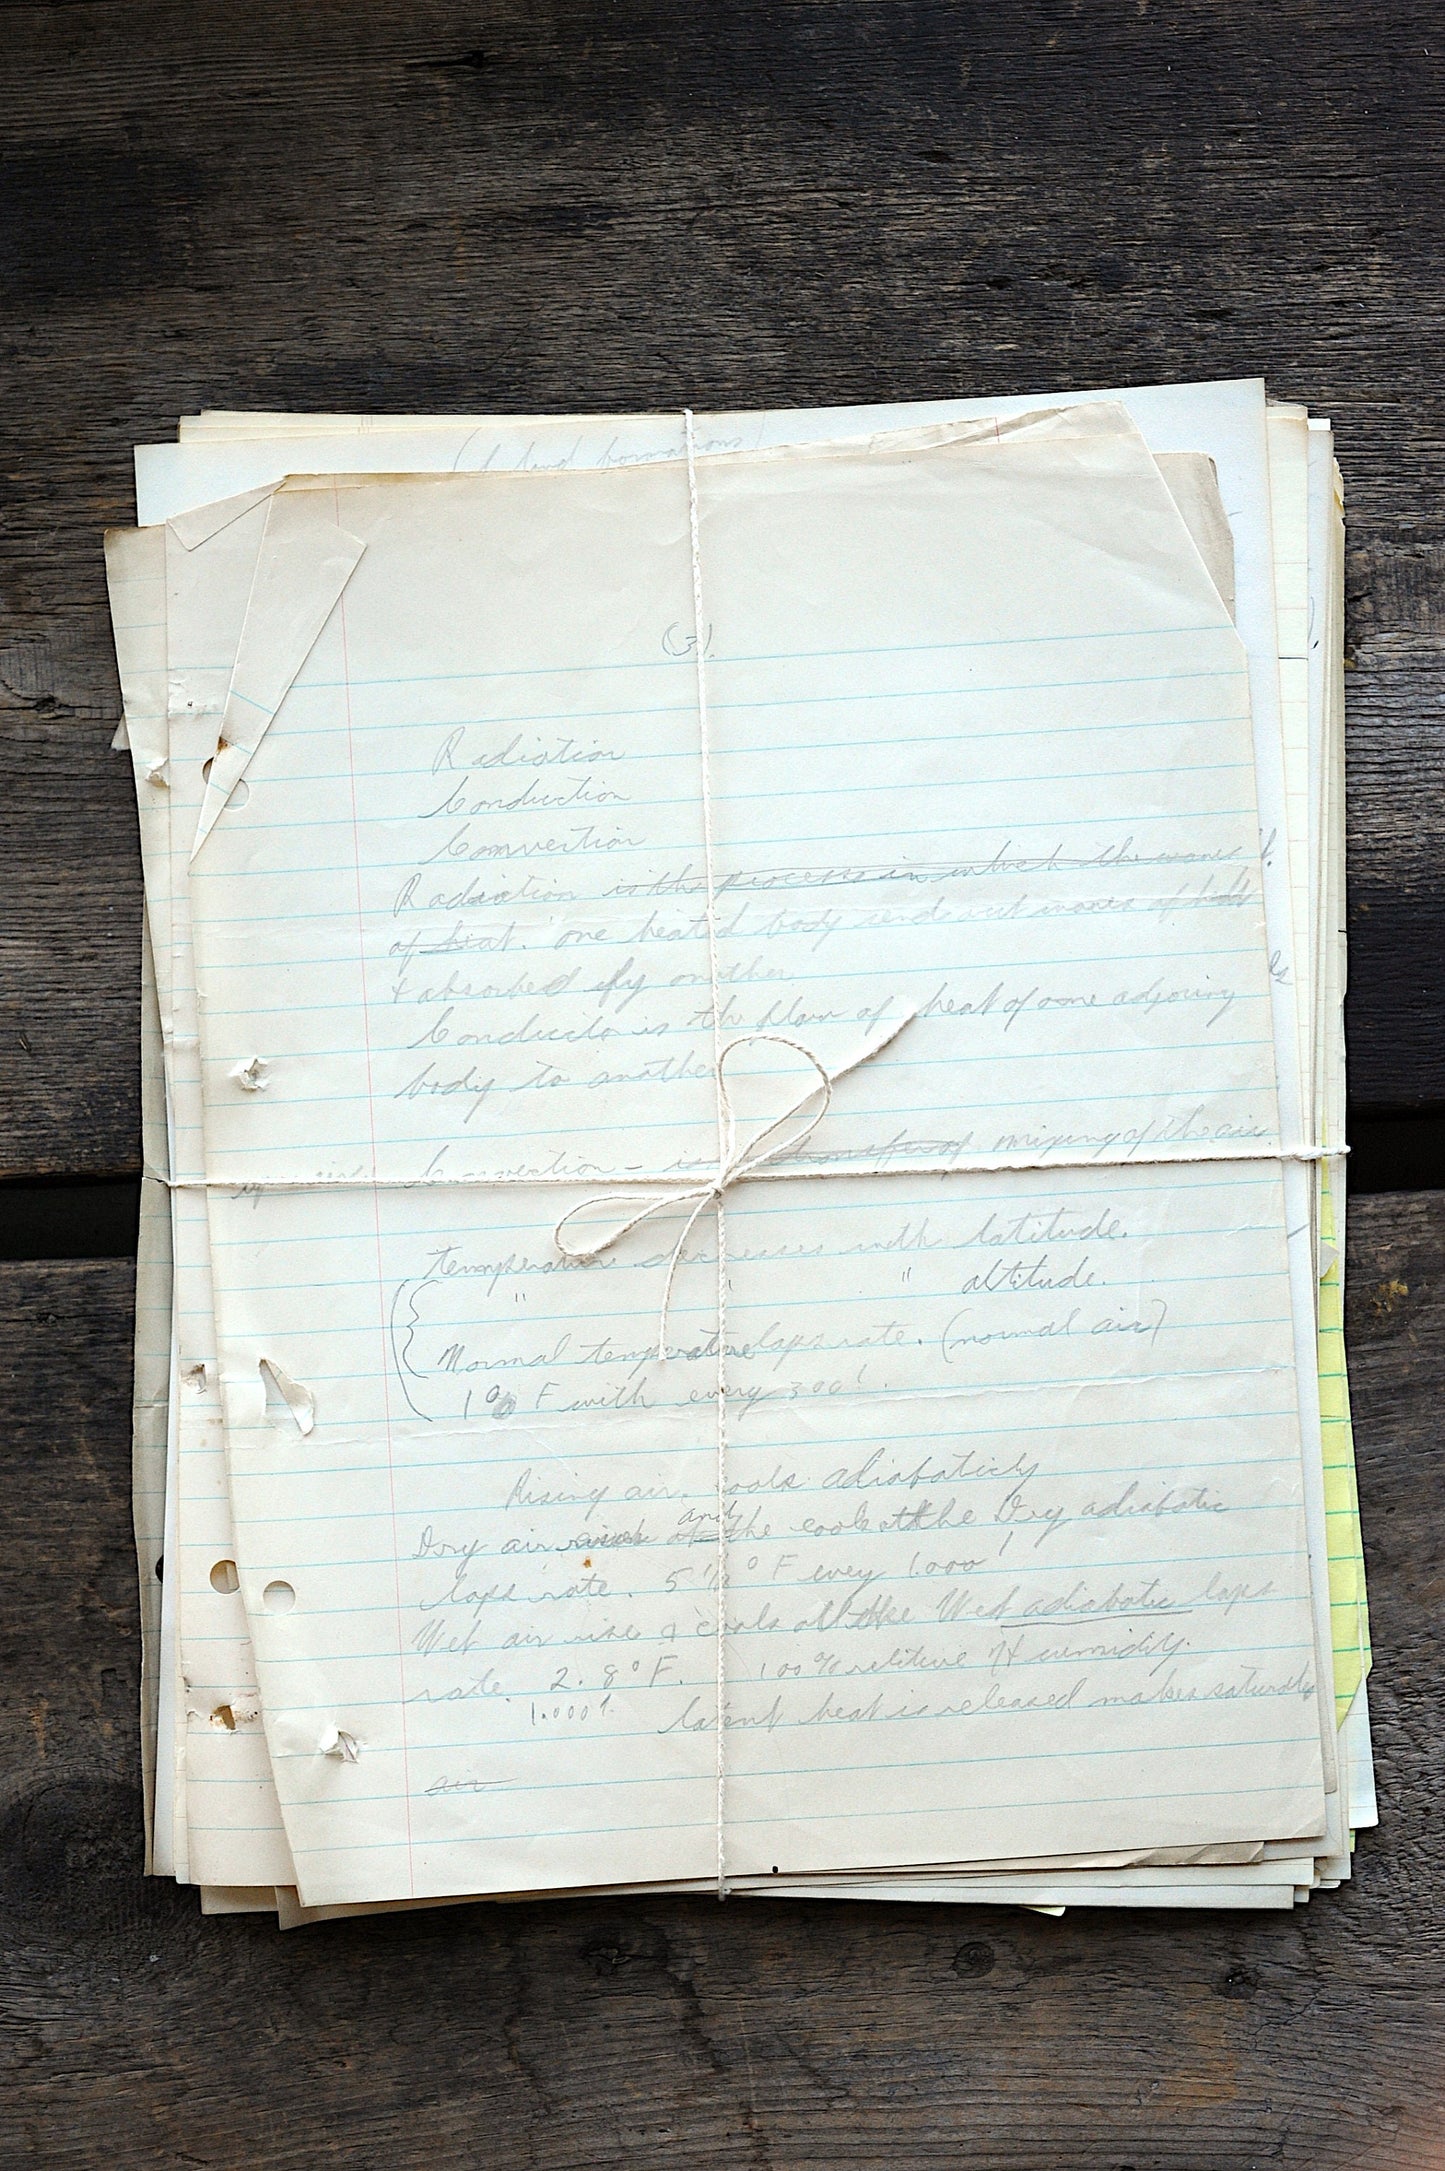 (of land formations)
(3).
Radiation
Conduction
Convection
Radiation is the process in which the waves
of heat. one heated body send out waves of heat
+ absorbed by another
Conductio is the flow of heat of one adjoing
body to another
Convection - is transfer of mixing of the air.
temperature decreases with latitude.
" " " altitude.
Normal temperature laps rate. (normal air)
1° F with every 300'.
Rising air. cools adiabaticly
and
Dry air the cools at the Dry adiabatic
laps rate. 5 1/2° F every 1.000'
Wet air rise & cools at the Wet adiabatic laps
rate. 2.8° F. 100% relitive Humidity.
1.000'. latent heat is released makes
air